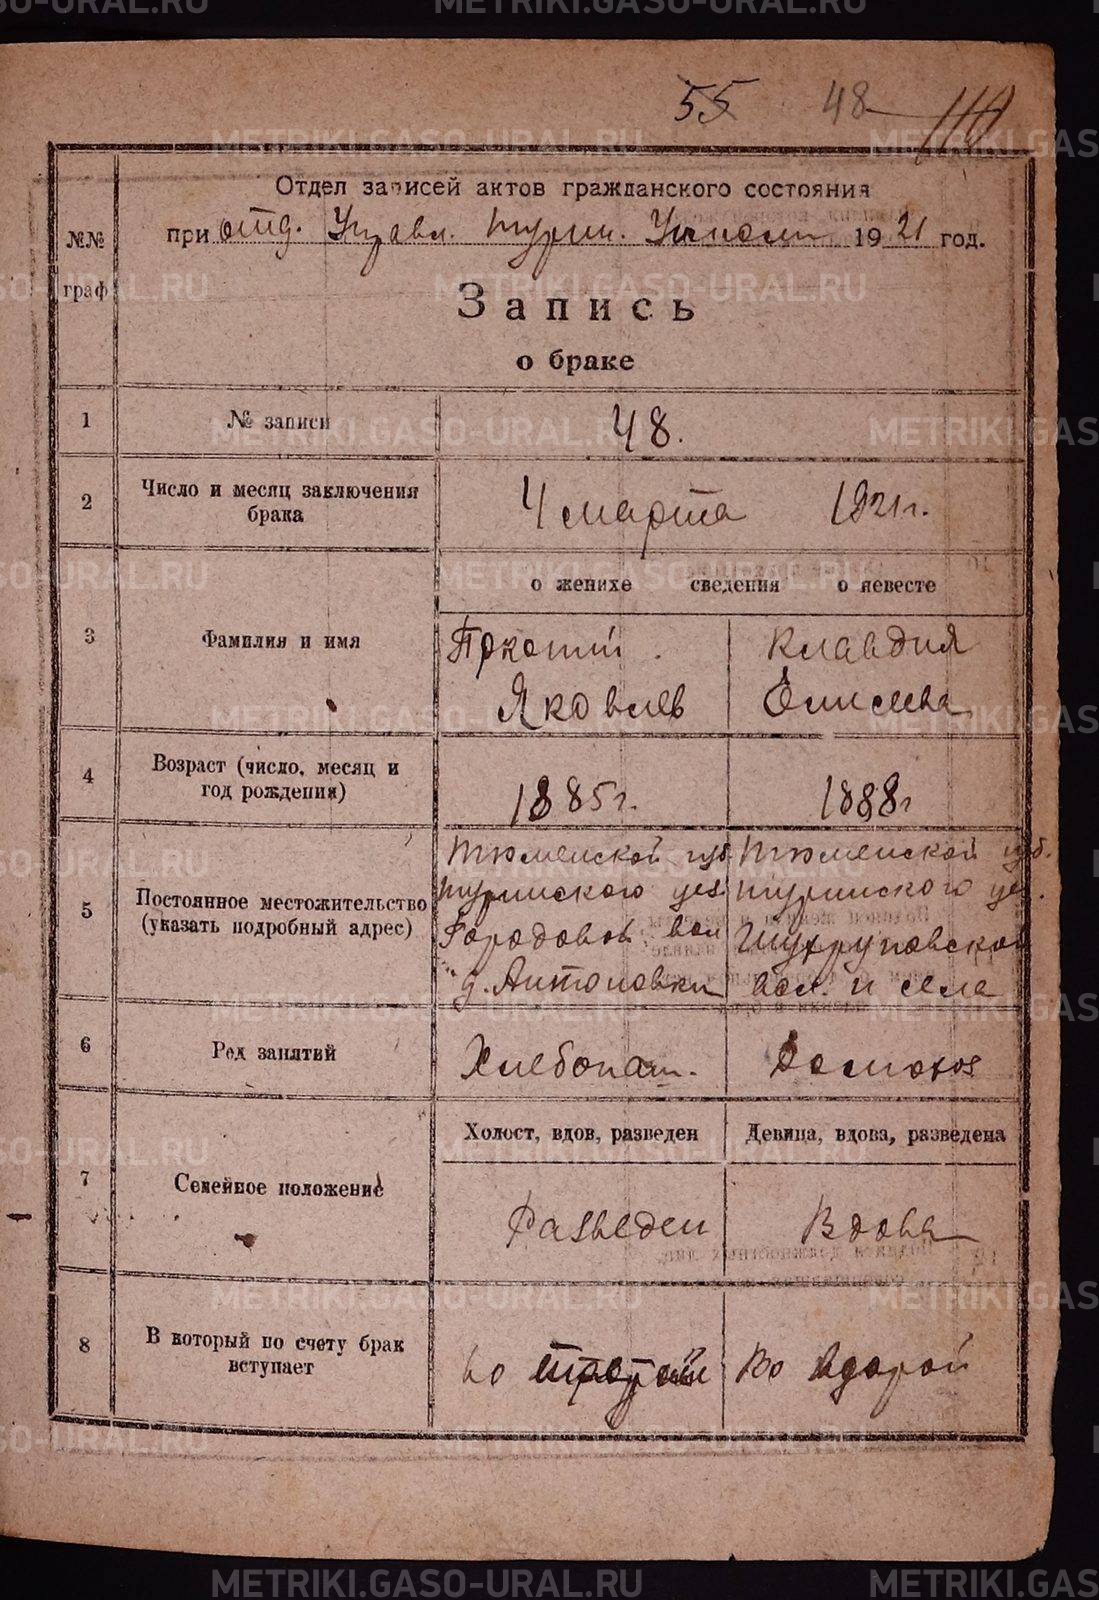 55 48
Отдел записей актов гражданского состояния
при отд. Управл. Турин. Уисполк 1921 год.
№№
граф
Запись
о браке
1 № записи 48.
2 Число и месяц заключения
брака 4 марта 1921 г.
о женихе сведения о невесте
3 Фамилия и имя
Клавдия
Яковлев Елисеева
4 Возраст (число, месяц и
год рождения) 1885 г. 1888 г
5 Постоянное местожительство
(указать подробный адрес)
Тюменской губ. Тюменской губ.
Туринского уез. Туринского уез.
Городовой вол Шухруповской
д. Антоновки вол. и села
6 Род занятий Хлебопаш. Домохоз
Холост, вдов, разведен Девица, вдова, разведена
7 Семейное положение
Разведен Вдова
8 В который по счету брак
вступает
во Во второй
METRIKI.GASO-URAL.RU